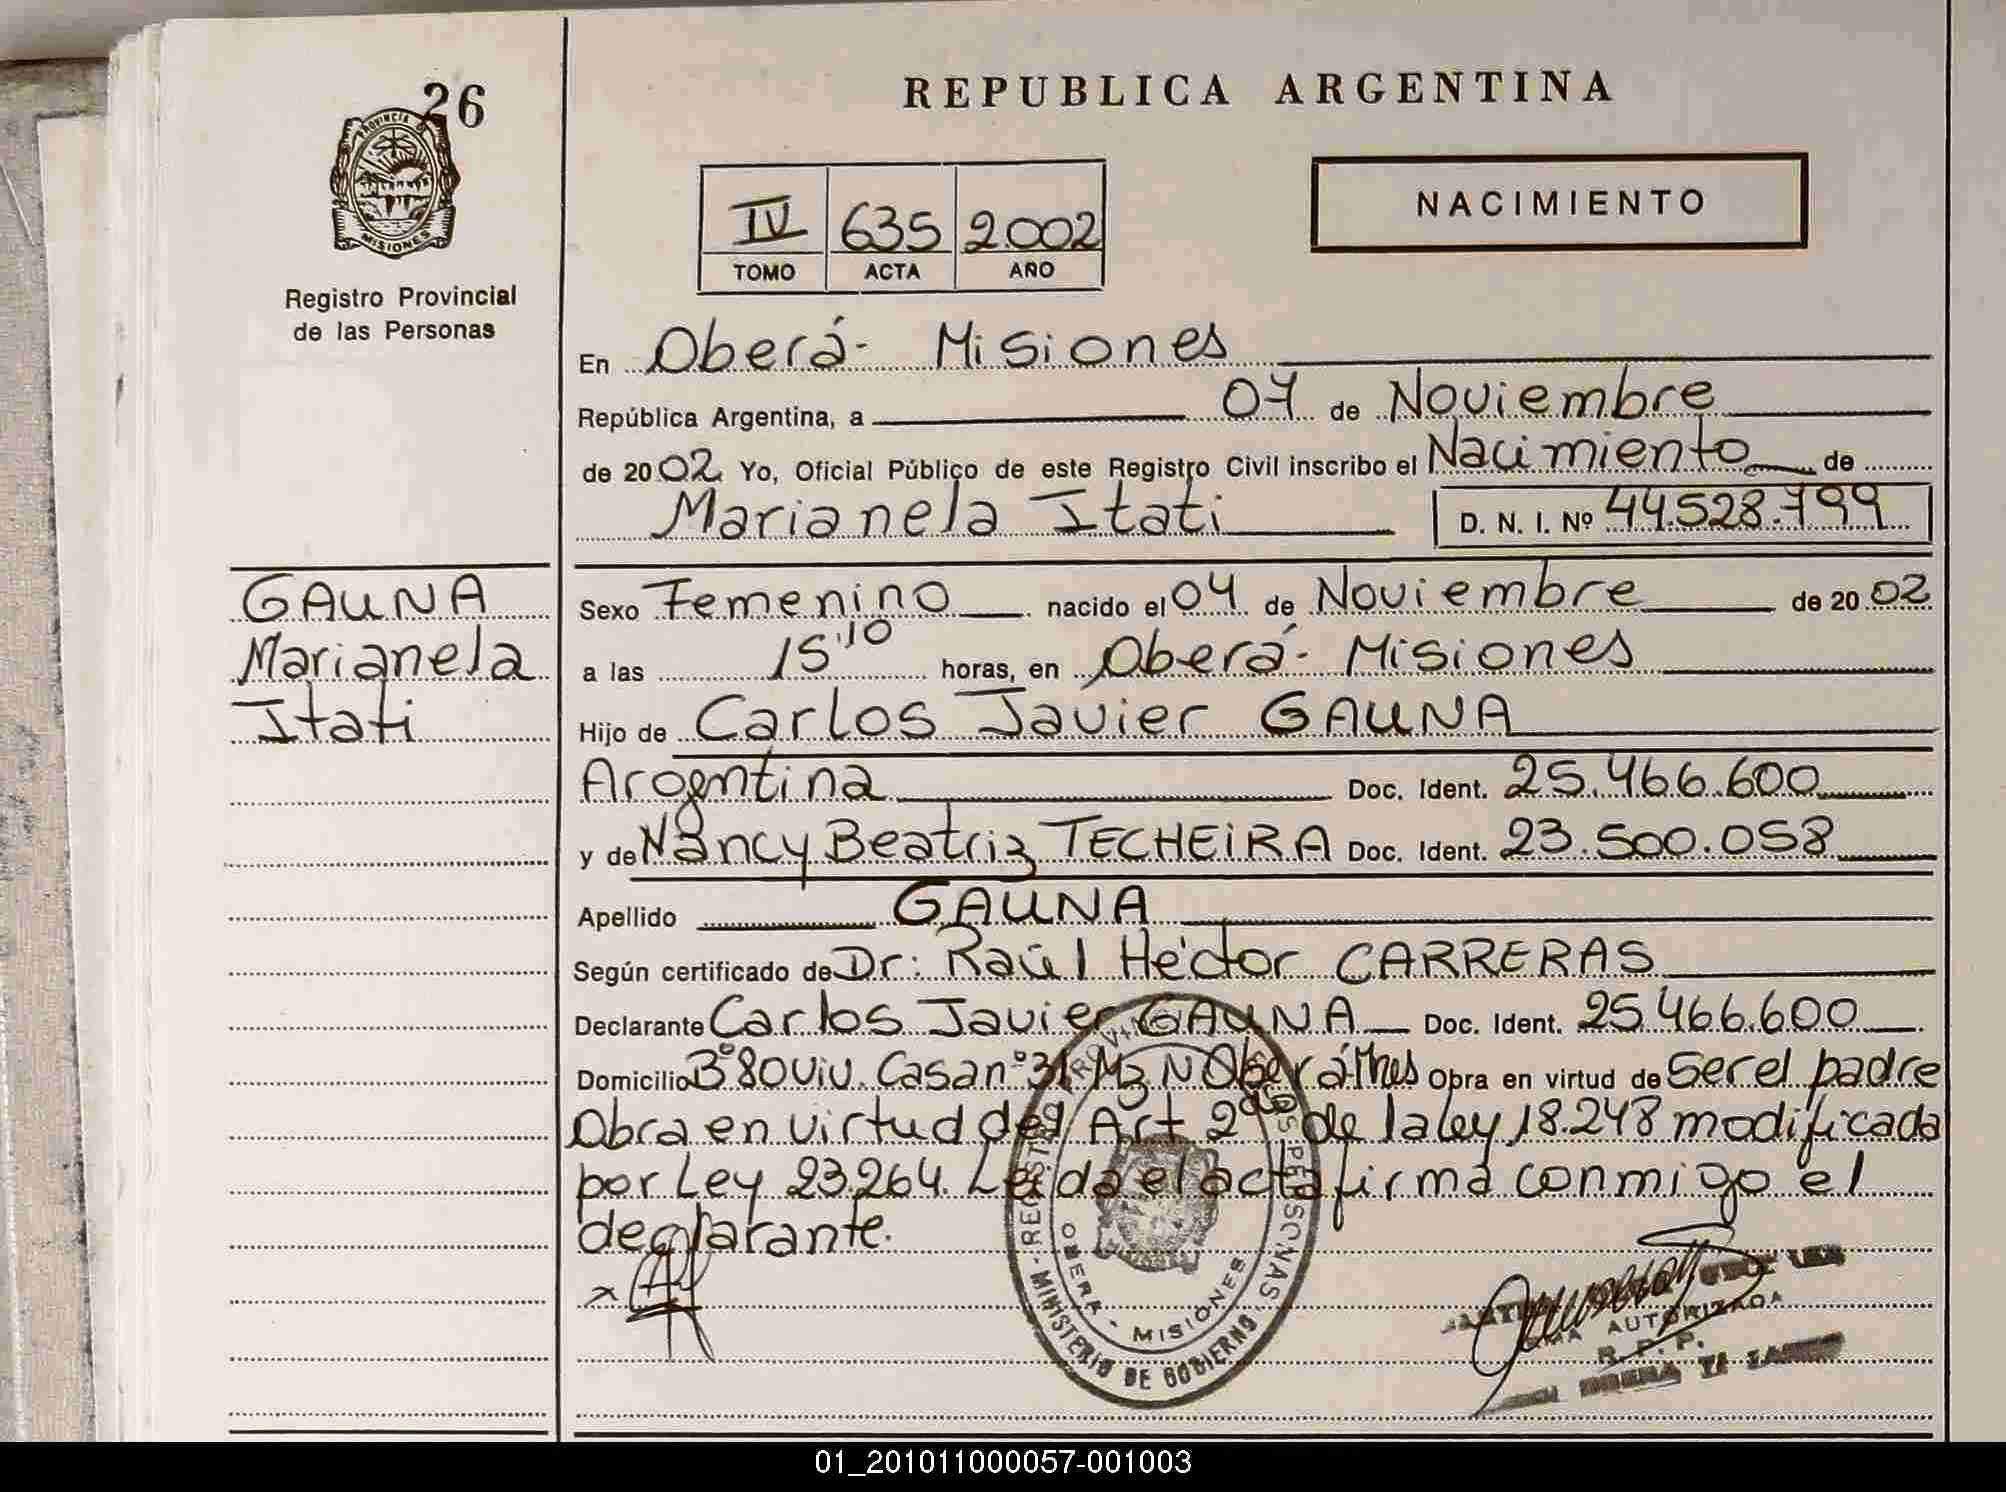 26
PROVINCIA DE
MISIONES
Registro Provincial
de las Personas
REPUBLICA ARGENTINA
IV 635 2002
TOMO ACTA AÑO
NACIMIENTO
En Oberá- Misiones
República Argentina, a 07 de Noviembre
de 2002 Yo, Oficial Público de este Registro Civil inscribo el Nacimiento de
Marianela Itati D. N. I. Nº 44.528.799
GAUNA
Marianela
Itati
Sexo Femenino nacido el 04 de Noviembre de 2002
a las 15'10 horas, en Oberá- Misiones
Hijo de Carlos Javier GAUNA
Argentina Doc. Ident. 25.466.600
y de Nancy Beatriz TECHEIRA Doc. Ident. 23.500.058
Apellido GAUNA
Según certificado de Dr: Raúl Héctor CARRERAS
Declarante Carlos Javier GAUNA Doc. Ident. 25.466.600
Domicilio Bº80Viv. Casa nº31 Mz N Oberá Mnes Obra en virtud de Ser el padre
Obra en virtud del Art 2do de la ley 18.248 modificada
por Ley 23.264. Leida el acta firma conmigo el
declarante.
OBERA - MISIONES
MINISTERIO DE GOBIERNO
AUTORIZADA
R. P. P.
01_201011000057-001003